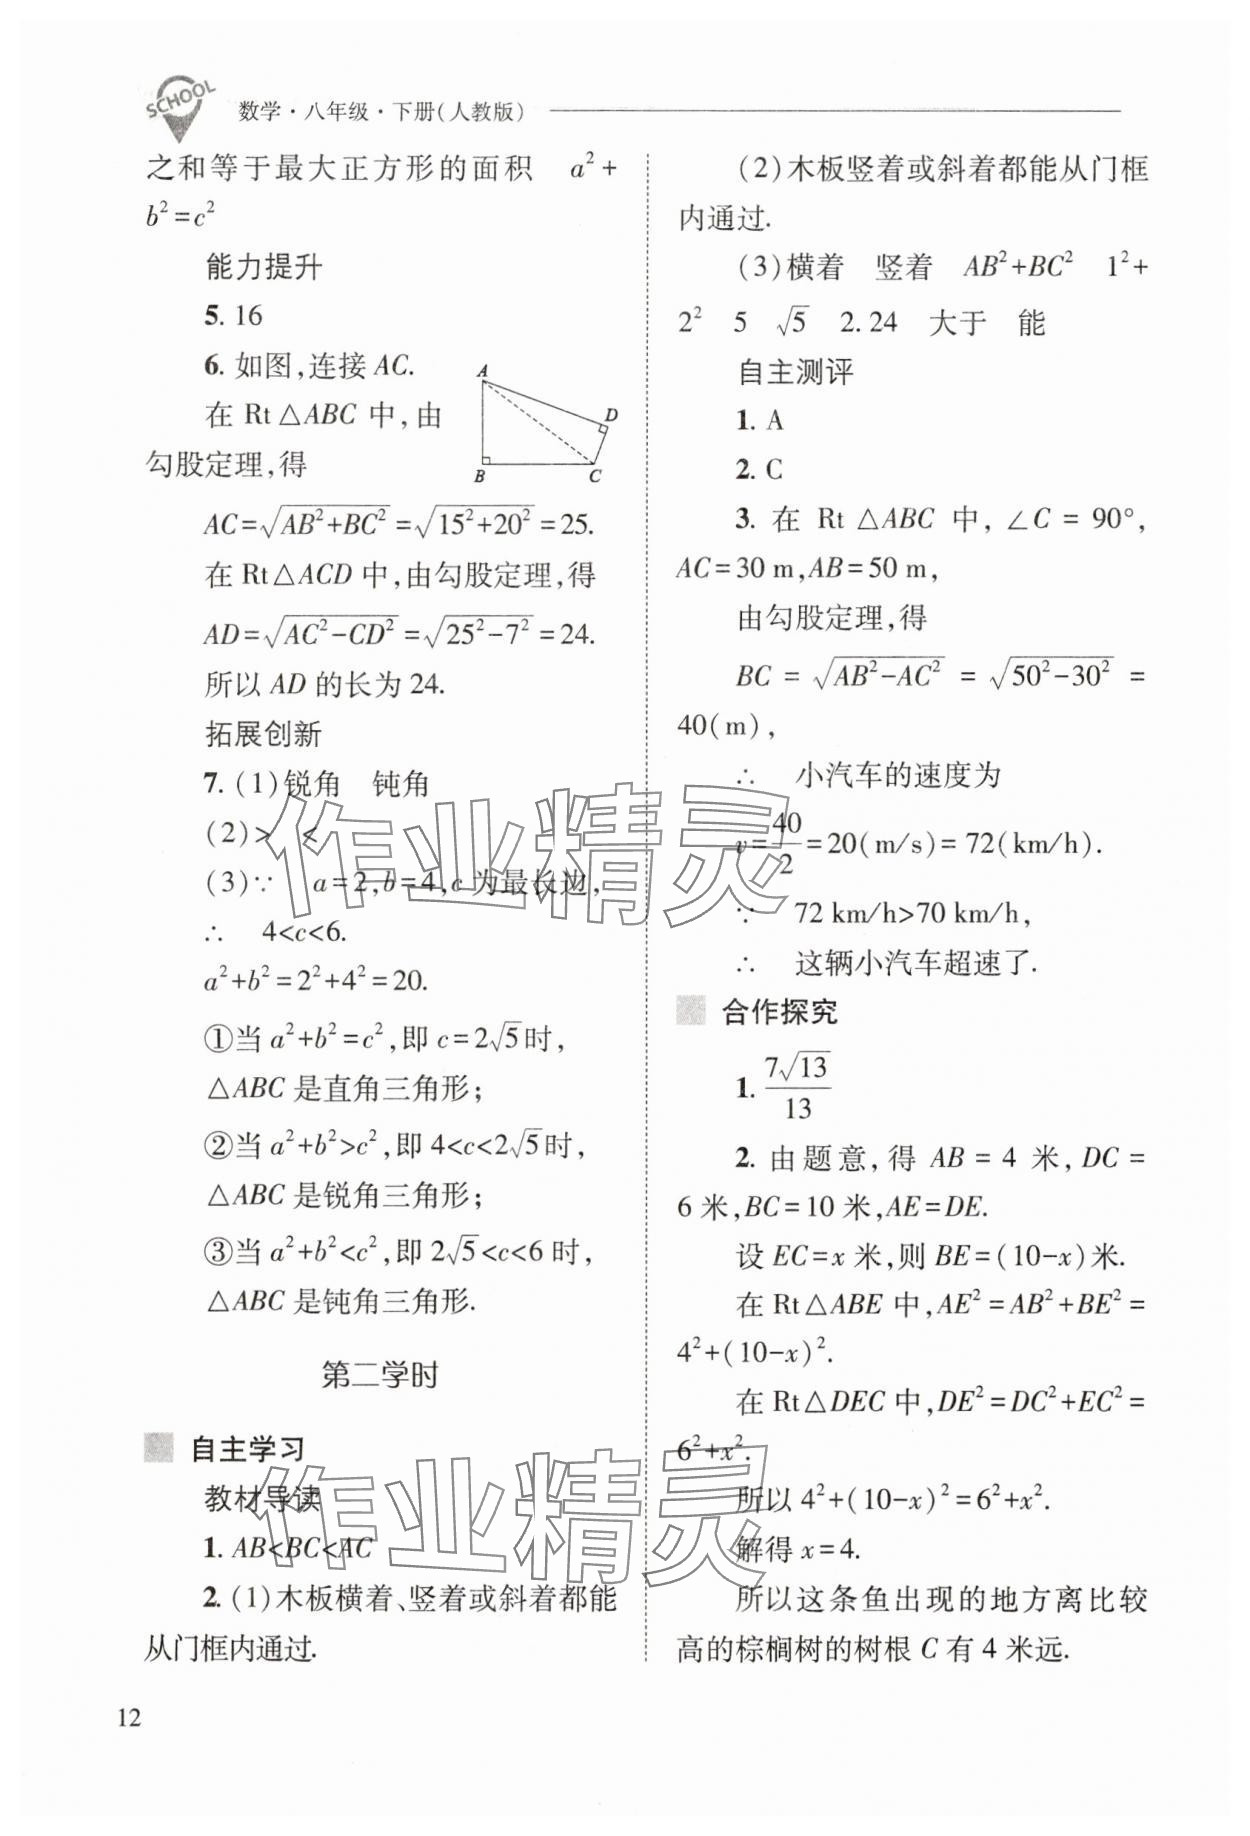 SCHOOL
数学·八年级·下册(人教版)
之和等于最大正方形的面积 a²+
b²=c²
能力提升
5. 16
6. 如图,连接 AC.
在 Rt△ABC 中,由
勾股定理,得
A
D
B
C
AC=√(AB²+BC²)=√(15²+20²)=25.
在 Rt△ACD 中,由勾股定理,得
AD=√(AC²-CD²)=√(25²-7²)=24.
所以 AD 的长为 24.
拓展创新
7. (1)锐角 钝角
(2)> <
(3)∵ a=2,b=4,c 为最长边,
∴ 4<c<6.
a²+b²=2²+4²=20.
①当 a²+b²=c²,即 c=2√5时,
△ABC 是直角三角形;
②当 a²+b²>c²,即 4<c<2√5时,
△ABC 是锐角三角形;
③当 a²+b²<c²,即 2√5<c<6 时,
△ABC 是钝角三角形.
第二学时
自主学习
教材导读
1. AB<BC<AC
2. (1)木板横着、竖着或斜着都能
从门框内通过.
(2)木板竖着或斜着都能从门框
内通过.
(3)横着 竖着 AB²+BC² 1²+
2² 5 √5 2.24 大于 能
自主测评
1. A
2. C
3. 在 Rt△ABC 中,∠C=90°,
AC=30 m,AB=50 m,
由勾股定理,得
BC=√(AB²-AC²)=√(50²-30²)=
40(m),
∴ 小汽车的速度为
v=40/2=20(m/s)=72(km/h).
∵ 72 km/h>70 km/h,
∴ 这辆小汽车超速了.
合作探究
1. 7√13/13
2. 由题意,得 AB=4 米,DC=
6 米,BC=10 米,AE=DE.
设 EC=x 米,则 BE=(10-x)米.
在 Rt△ABE 中,AE²=AB²+BE²=
4²+(10-x)².
在 Rt△DEC 中,DE²=DC²+EC²=
6²+x².
所以 4²+(10-x)²=6²+x².
解得 x=4.
所以这条鱼出现的地方离比较
高的棕榈树的树根 C 有 4 米远.
12
作业精灵
作业精灵